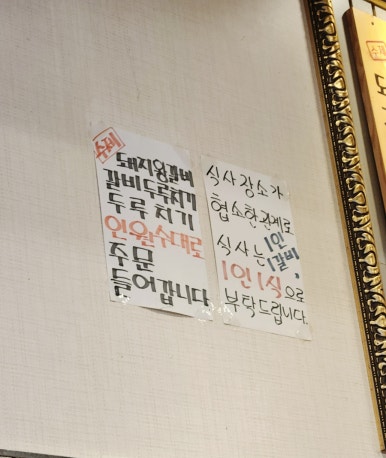 수제
돼지왕갈비
갈비두루치기
두루치기
인원수대로
주문
들어갑니다
식사장소가
협소한관계로
식사는 1인
1갈비,
1인 1식으로
부탁드립니다.